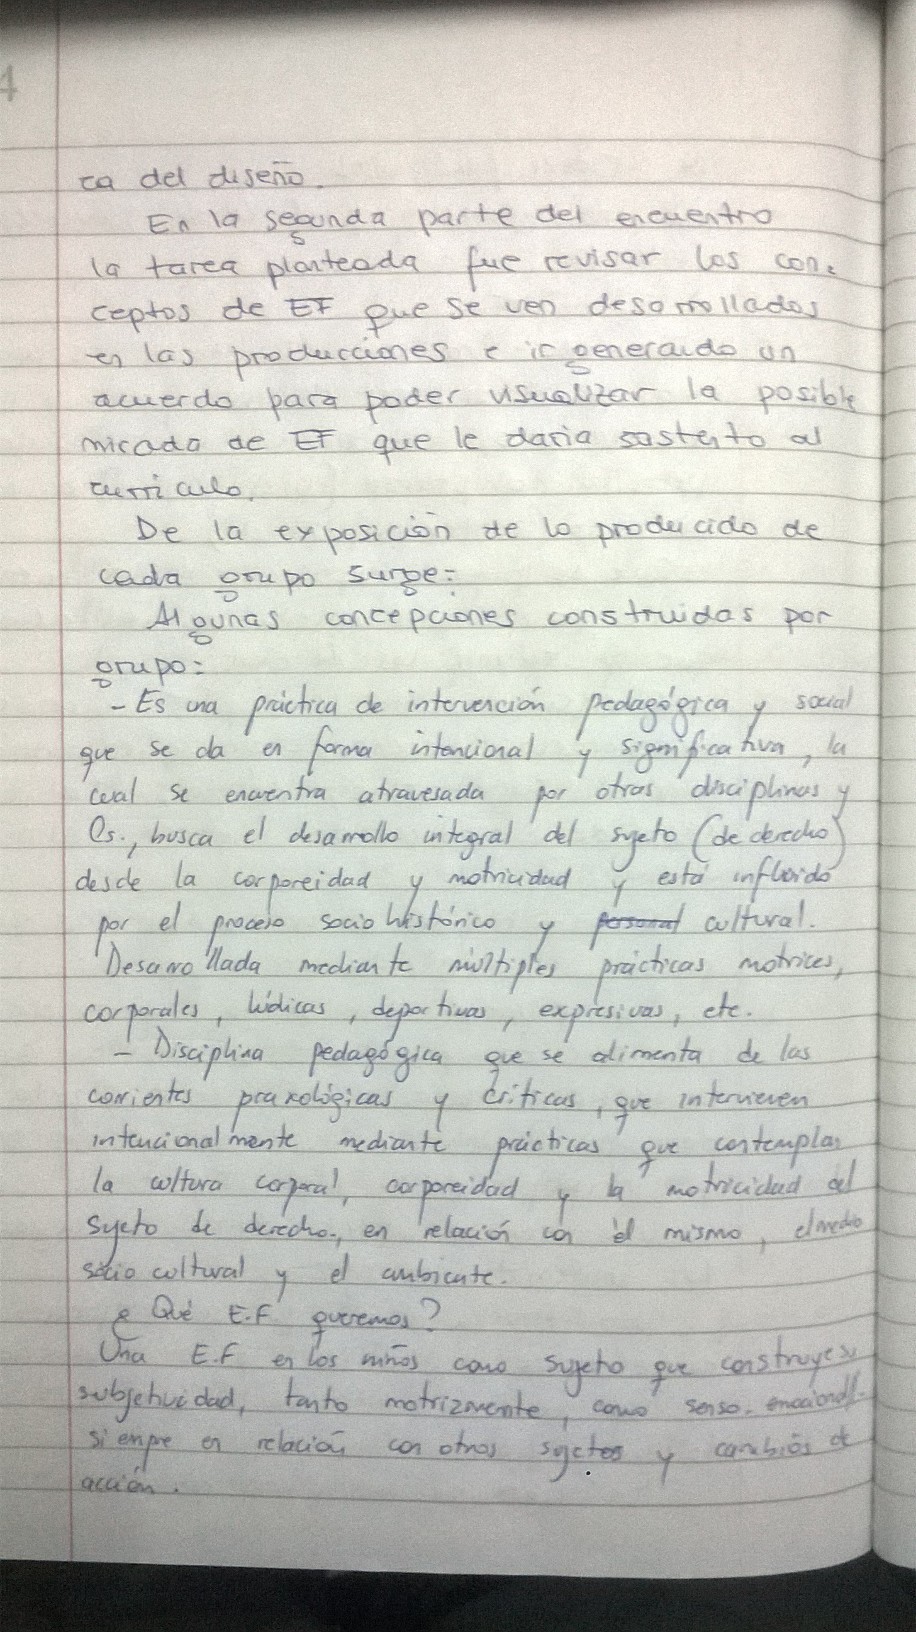 4
ca del diseño.
En la segunda parte del encuentro
la tarea planteada fue revisar los con-
ceptos de EF que se ven desarrollados
en las producciones e ir generando un
acuerdo para poder visualizar la posible
mirada de EF que le daria sustento al
curriculo.
De la exposición de lo producido de
cada grupo surge:
Algunas concepciones construidas por
grupo:
- Es una práctica de intervención pedagógica y social
que se da en forma intencional y significativa, la
cual se encuentra atravesada por otras disciplinas y
Cs., busca el desarrollo integral del sujeto (de derecho)
desde la corporeidad y motricidad y está influido
por el proceso socio histórico y personal cultural.
Desarrollada mediante múltiples prácticas motrices,
corporales, lúdicas, deportivas, expresivas, etc.
- Disciplina pedagógica que se alimenta de las
corrientes praxológicas y críticas, que intervienen
intencionalmente mediante prácticas que contemplan
la cultura corporal, corporeidad y la motricidad del
sujeto de derecho, en relación con él mismo, el medio
socio cultural y el ambiente.
¿Qué E.F queremos?
Una E.F en los niños como sujeto que construye su
subjetividad, tanto motrizmente, como senso-emocional-
siempre en relación con otros sujetos y cambios de
acción.